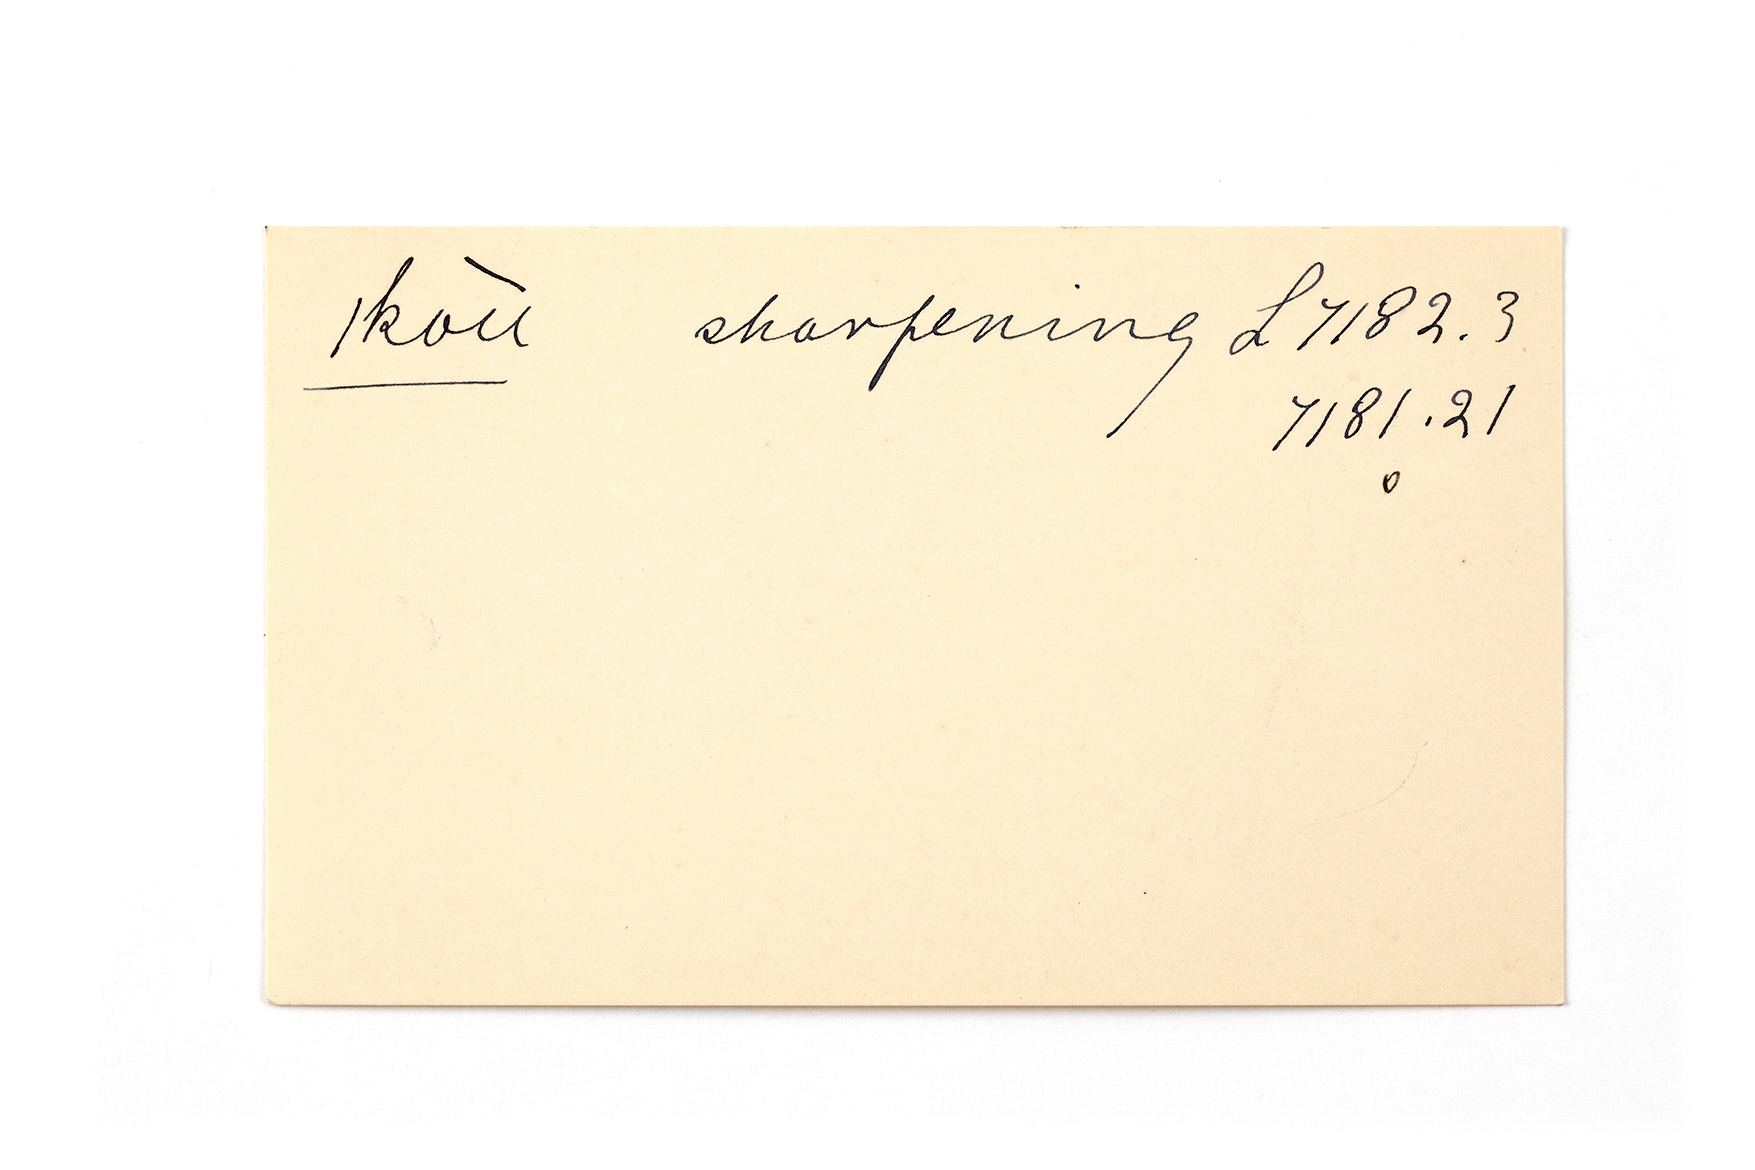 ikòu sharpening L 7182.3
7181.21
o